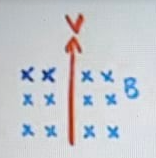 V
x x x x
x x x x B
x x x x